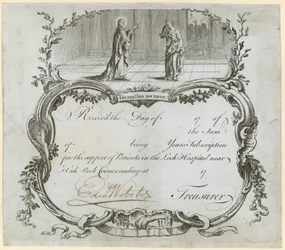 Received the Day of 17 of
the Sum
of being Years Subscription
for the support of Patients in the Lock Hospital near
Hide Park Corner ending at 17
Treasurer